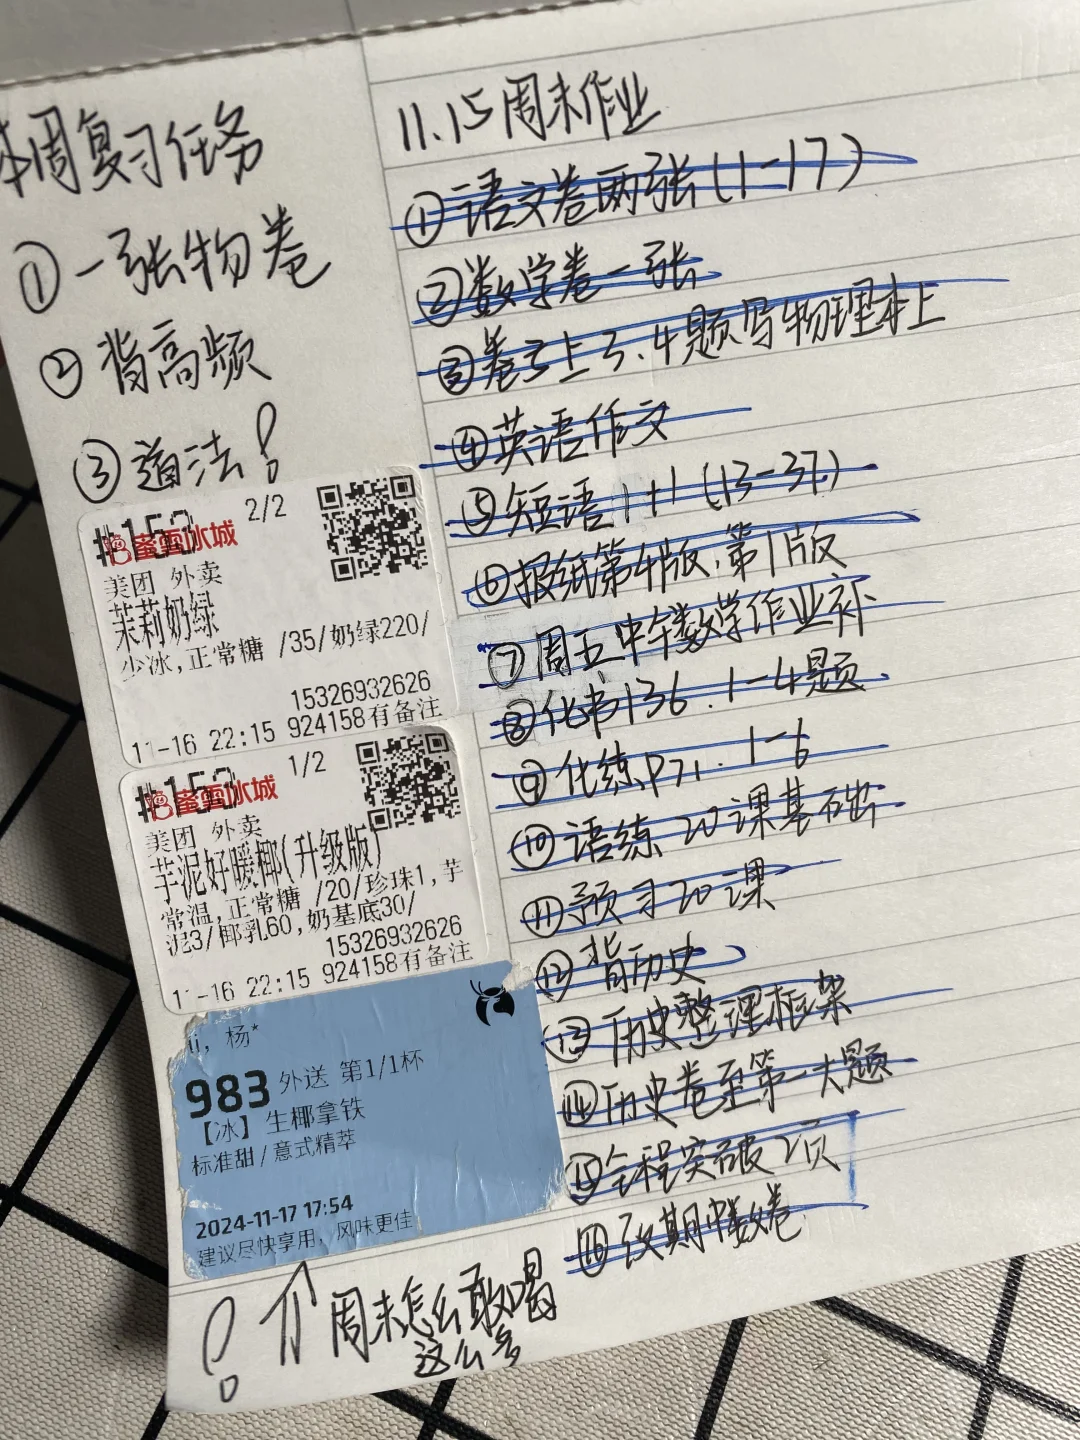 本周复习任务
①一张物卷
②背高频
③道法!
11.15周末作业
①语文卷两张(1-17)
②数学卷一张
③卷子上3.4题写物理本上
④英语作文
⑤短语1+1(13-37)
⑥报纸第4版.第1版
⑦周五中午数学作业补
⑧化书136.1-4题
⑨化练P71.1-6
⑩语练20课基础
⑪预习20课
⑫背历史
⑬历史整理框架
⑭历史卷至第一大题
⑮全程突破2页
⑯改期中数卷
#153 2/2
蜜雪冰城
美团 外卖
茉莉奶绿
少冰,正常糖 /35/奶绿220/
15326932626
11-16 22:15 924158有备注
#153 1/2
蜜雪冰城
美团 外卖
芋泥好暖椰(升级版)
常温,正常糖 /20/珍珠1,芋
泥3/椰乳60,奶基底30/
15326932626
11-16 22:15 924158有备注
Hi, 杨*
983 外送 第1/1杯
【冰】生椰拿铁
标准甜/意式精萃
2024-11-17 17:54
建议尽快享用,风味更佳
! 周末怎么敢喝
这么多